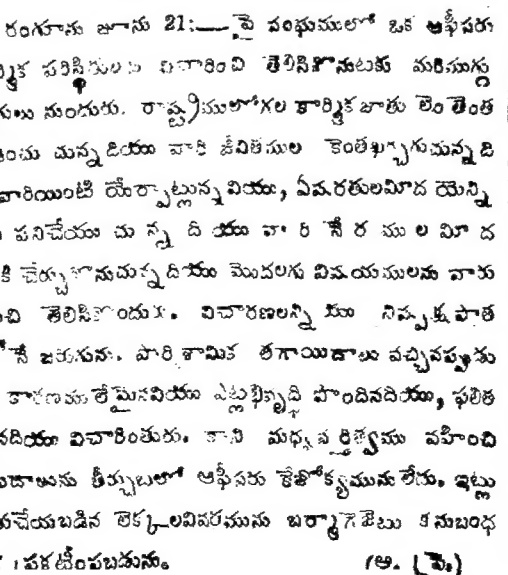 రంగూను జూను 21:—పై పంథుములో ఒక ఆఫీసరు
ర్మిక పరిస్థితులను విచారించి తెలిసికొనుటకు మరిముగ్గు
రులు నుందురు. రాష్ట్రములోగల కార్మిక జాతు లెం తెంత
దించు చున్న దియు వారి జీవితముల కెంతఖర్చగుచున్న ది
వారియింటి యేర్పాట్లున్న వియు, ఏషరతులమీద యెన్ని
పనిచేయు చు న్న దియు వా రి పే ర ము ల మీ ద
కి చేర్చుకొనుచున్న దియు మొదలగు విషయములను వారు
చి తెలిసికొందురు. విచారణలన్ని యు నిష్పక్ష పాత
నే జరుగును. పారిశ్రామిక తగాయిదాలు వచ్చినప్పుడు
కారణము లేమైనవియు ఎట్లభివృద్ధి పొందినదియు, ఫలిత
నదియు విచారింతురు. కాని మధ్యవర్తిత్వము వహించి
యిదాలును తీర్చుటలో ఆఫీసరు కేజోక్యమును లేదు. ఇట్లు
చేయబడిన లెక్కలవివరమును బర్మాగెజెటు కనుబంధ
ప్రకటింపబడును. (ఆ. ప్రె.)